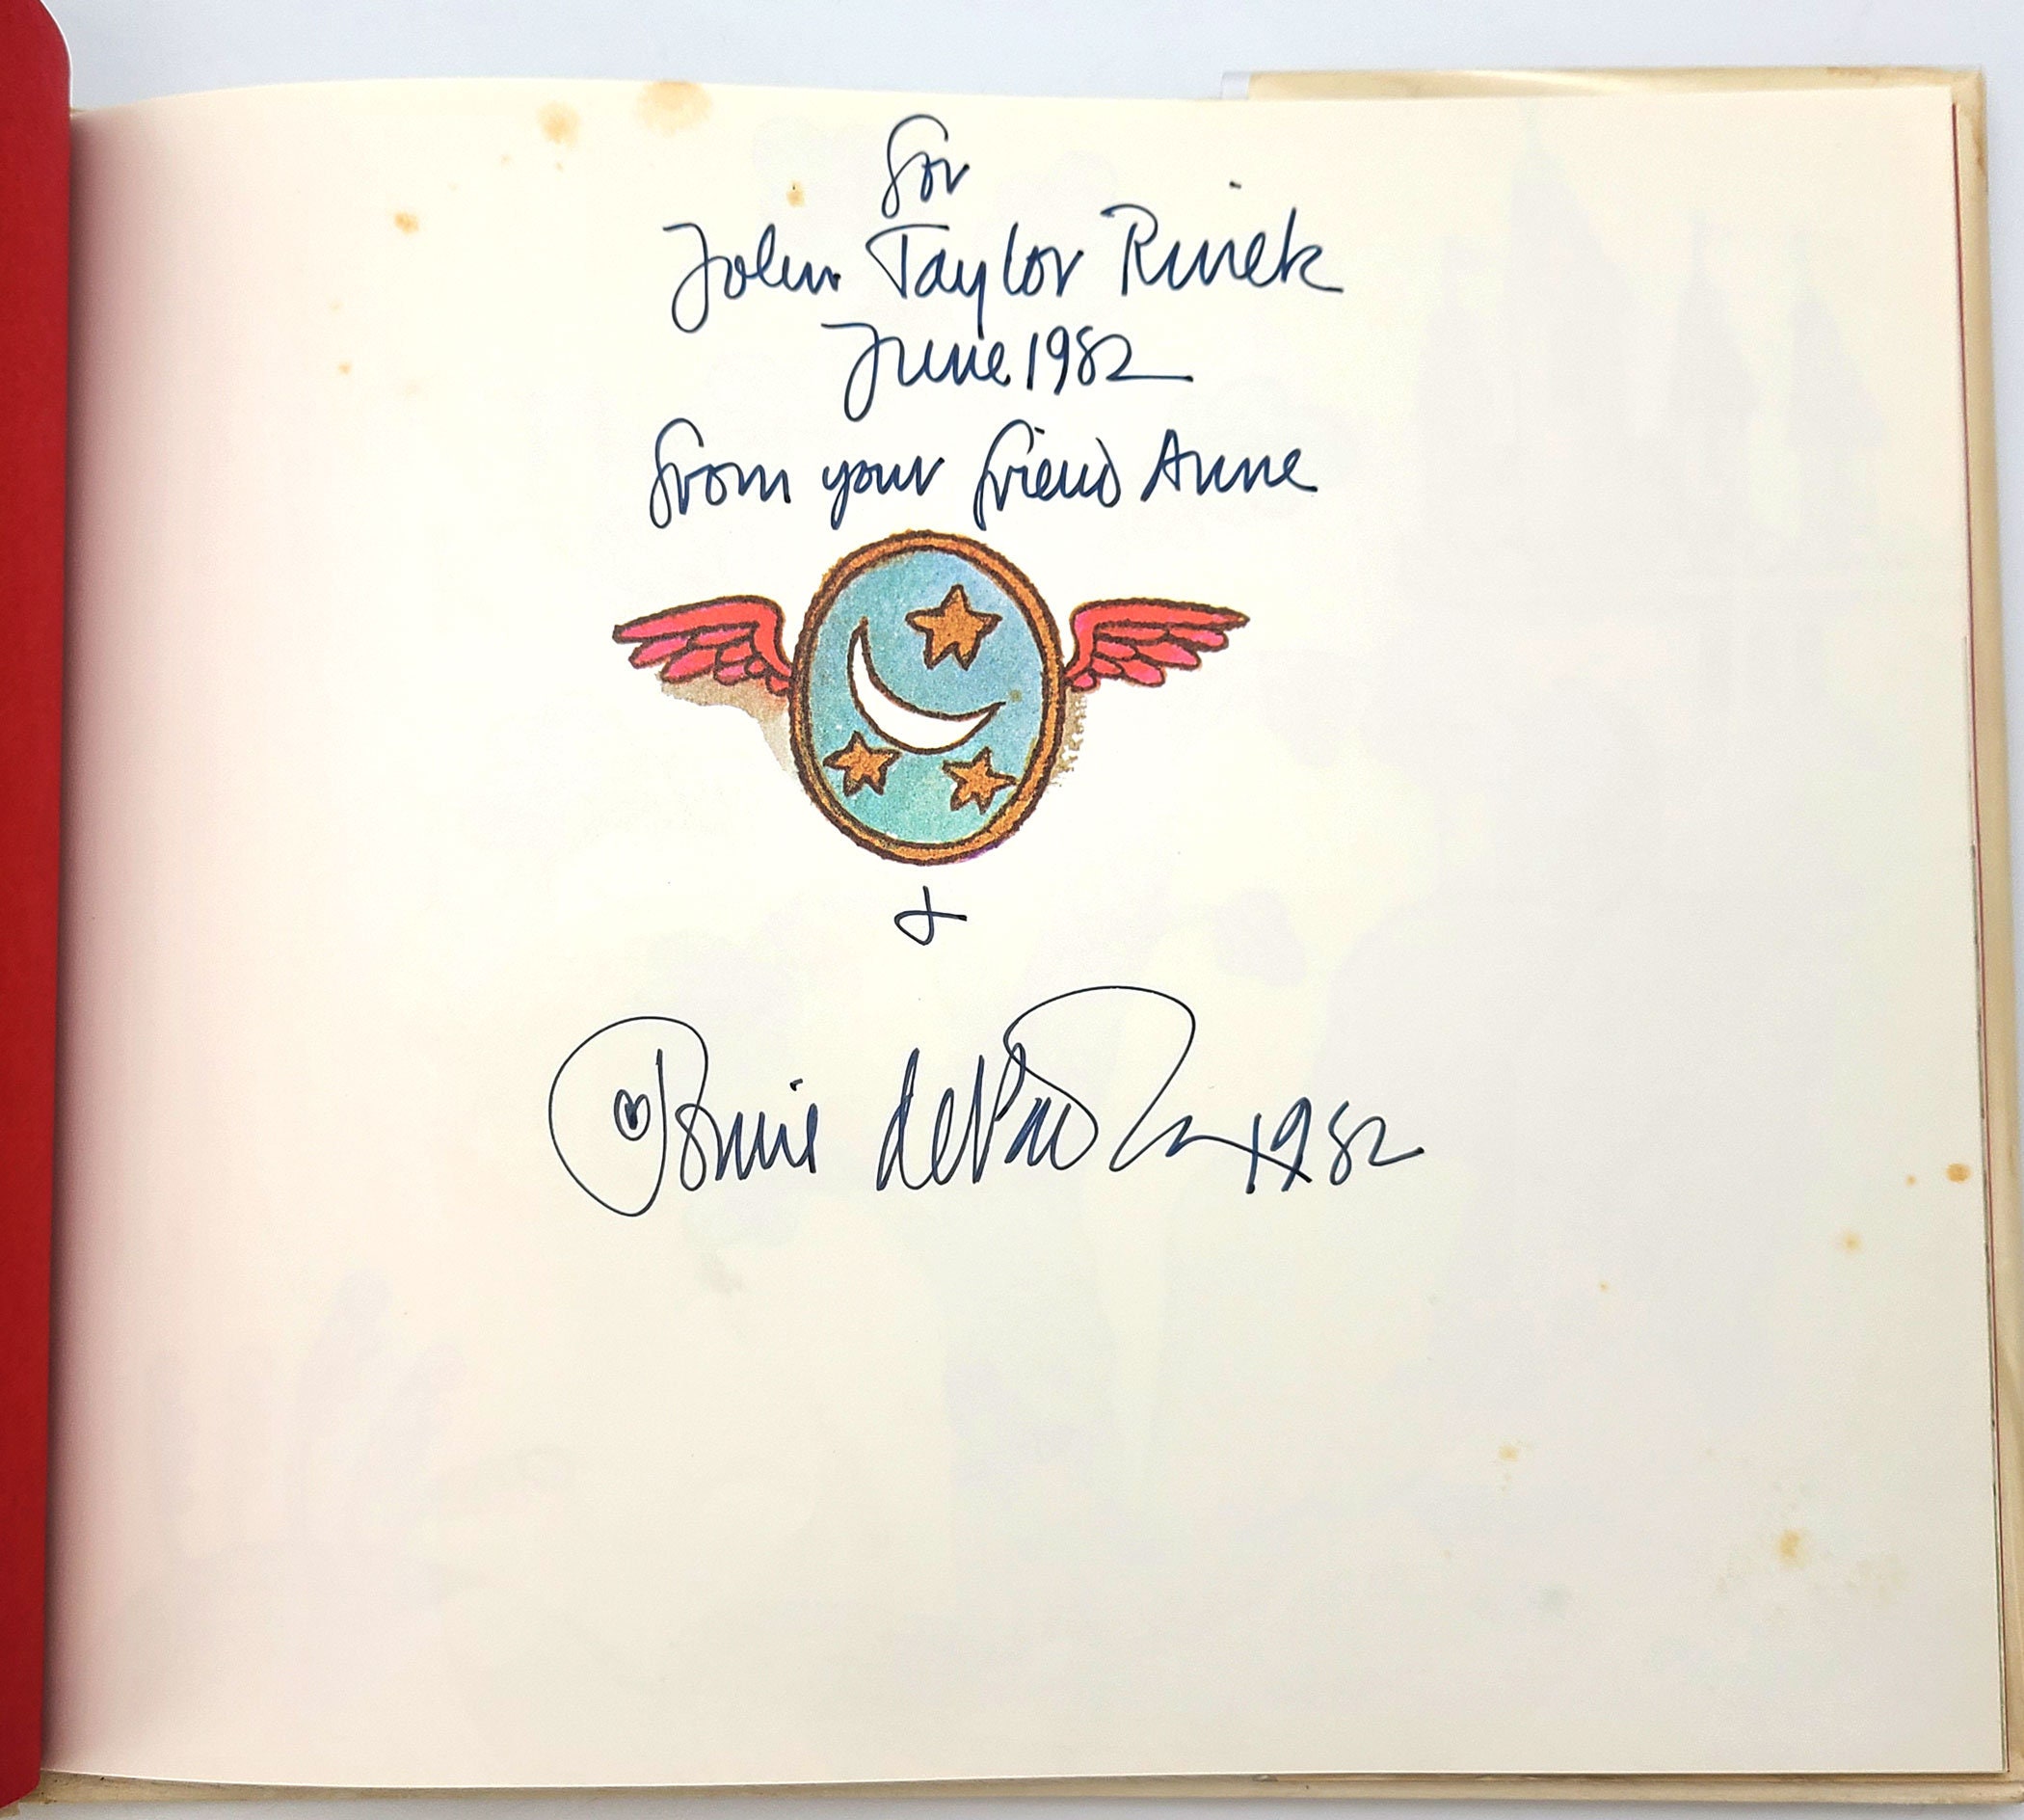 for
John Taylor Rinek
June 1982
from your friend Anne
&
Tomie dePaola 1982